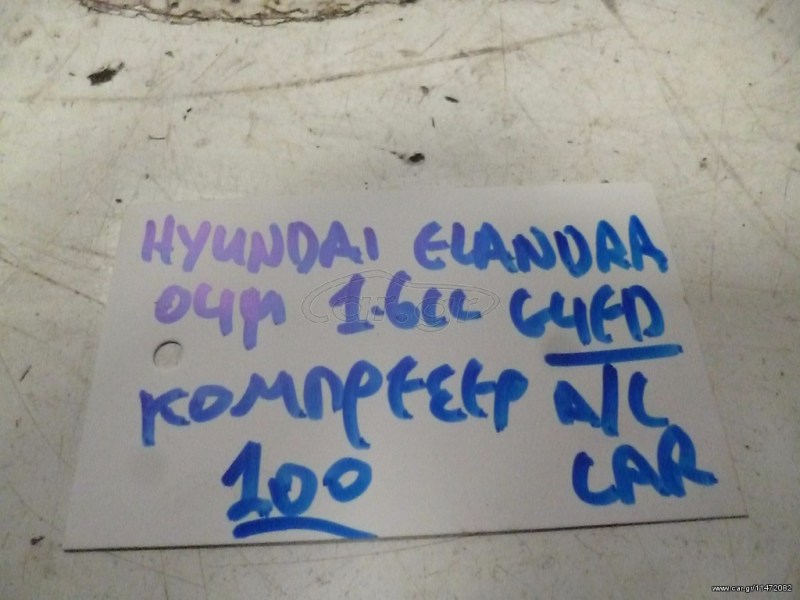 HYUNDAI ELANDRA
04μ 1.6cc G4ED
ΚΟΜΠΡΕΣΕΡ A/C
100 CAR
www.car.gr/11472082